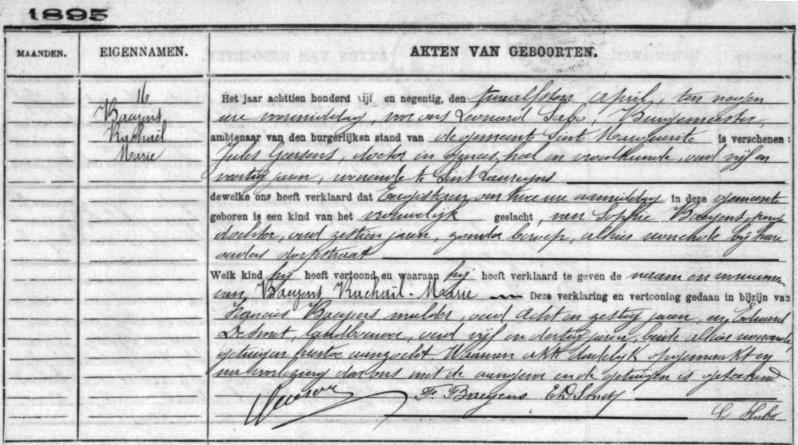 1895
MAANDEN. EIGENNAMEN. AKTEN VAN GEBOORTEN.
16
Baeyens
Rachaël
Marie
Het jaar achttien honderd vijf en negentig, den twaalfsten April, ten negen
ure voormiddag, voor ons Leonard Burgemeester,
ambtenaar van den burgerlijken stand van de gemeent Sint Marguerite is verschenen:
Jules Goesens, doctor in genees, heel en vroedkunde, oud vijf en
veertig jaren, wonende te Sint Laureyns
dewelke ons heeft verklaard dat Eergisteren om twee ure namiddag in deze gemeente
geboren is een kind van het vrouwelijk geslacht, van Sophie Baeyens, jonge
dochter, oud zestien jaren, zonder beroep, alhier wonende bij hare
ouders dorpstraat
Welk kind hij heeft vertoond, en waaraan hij heeft verklaard te geven de naam en voornamen
van Baeyens Rachaël-Marie Deze verklaring en vertooning gedaan in bijzijn van
Francies Baeyens mulder, oud acht en zestig jaren, en Eduard
De Smet, landbouwer, oud vijf en dertig jaren, beide alhier wonende
getuigen hiertoe aangezocht. Waarvan akt dadelijk opgemaakt en
na voorlezing door ons met de aangever en de getuigen is geteekend
F. Baeyens Ed. De Smet